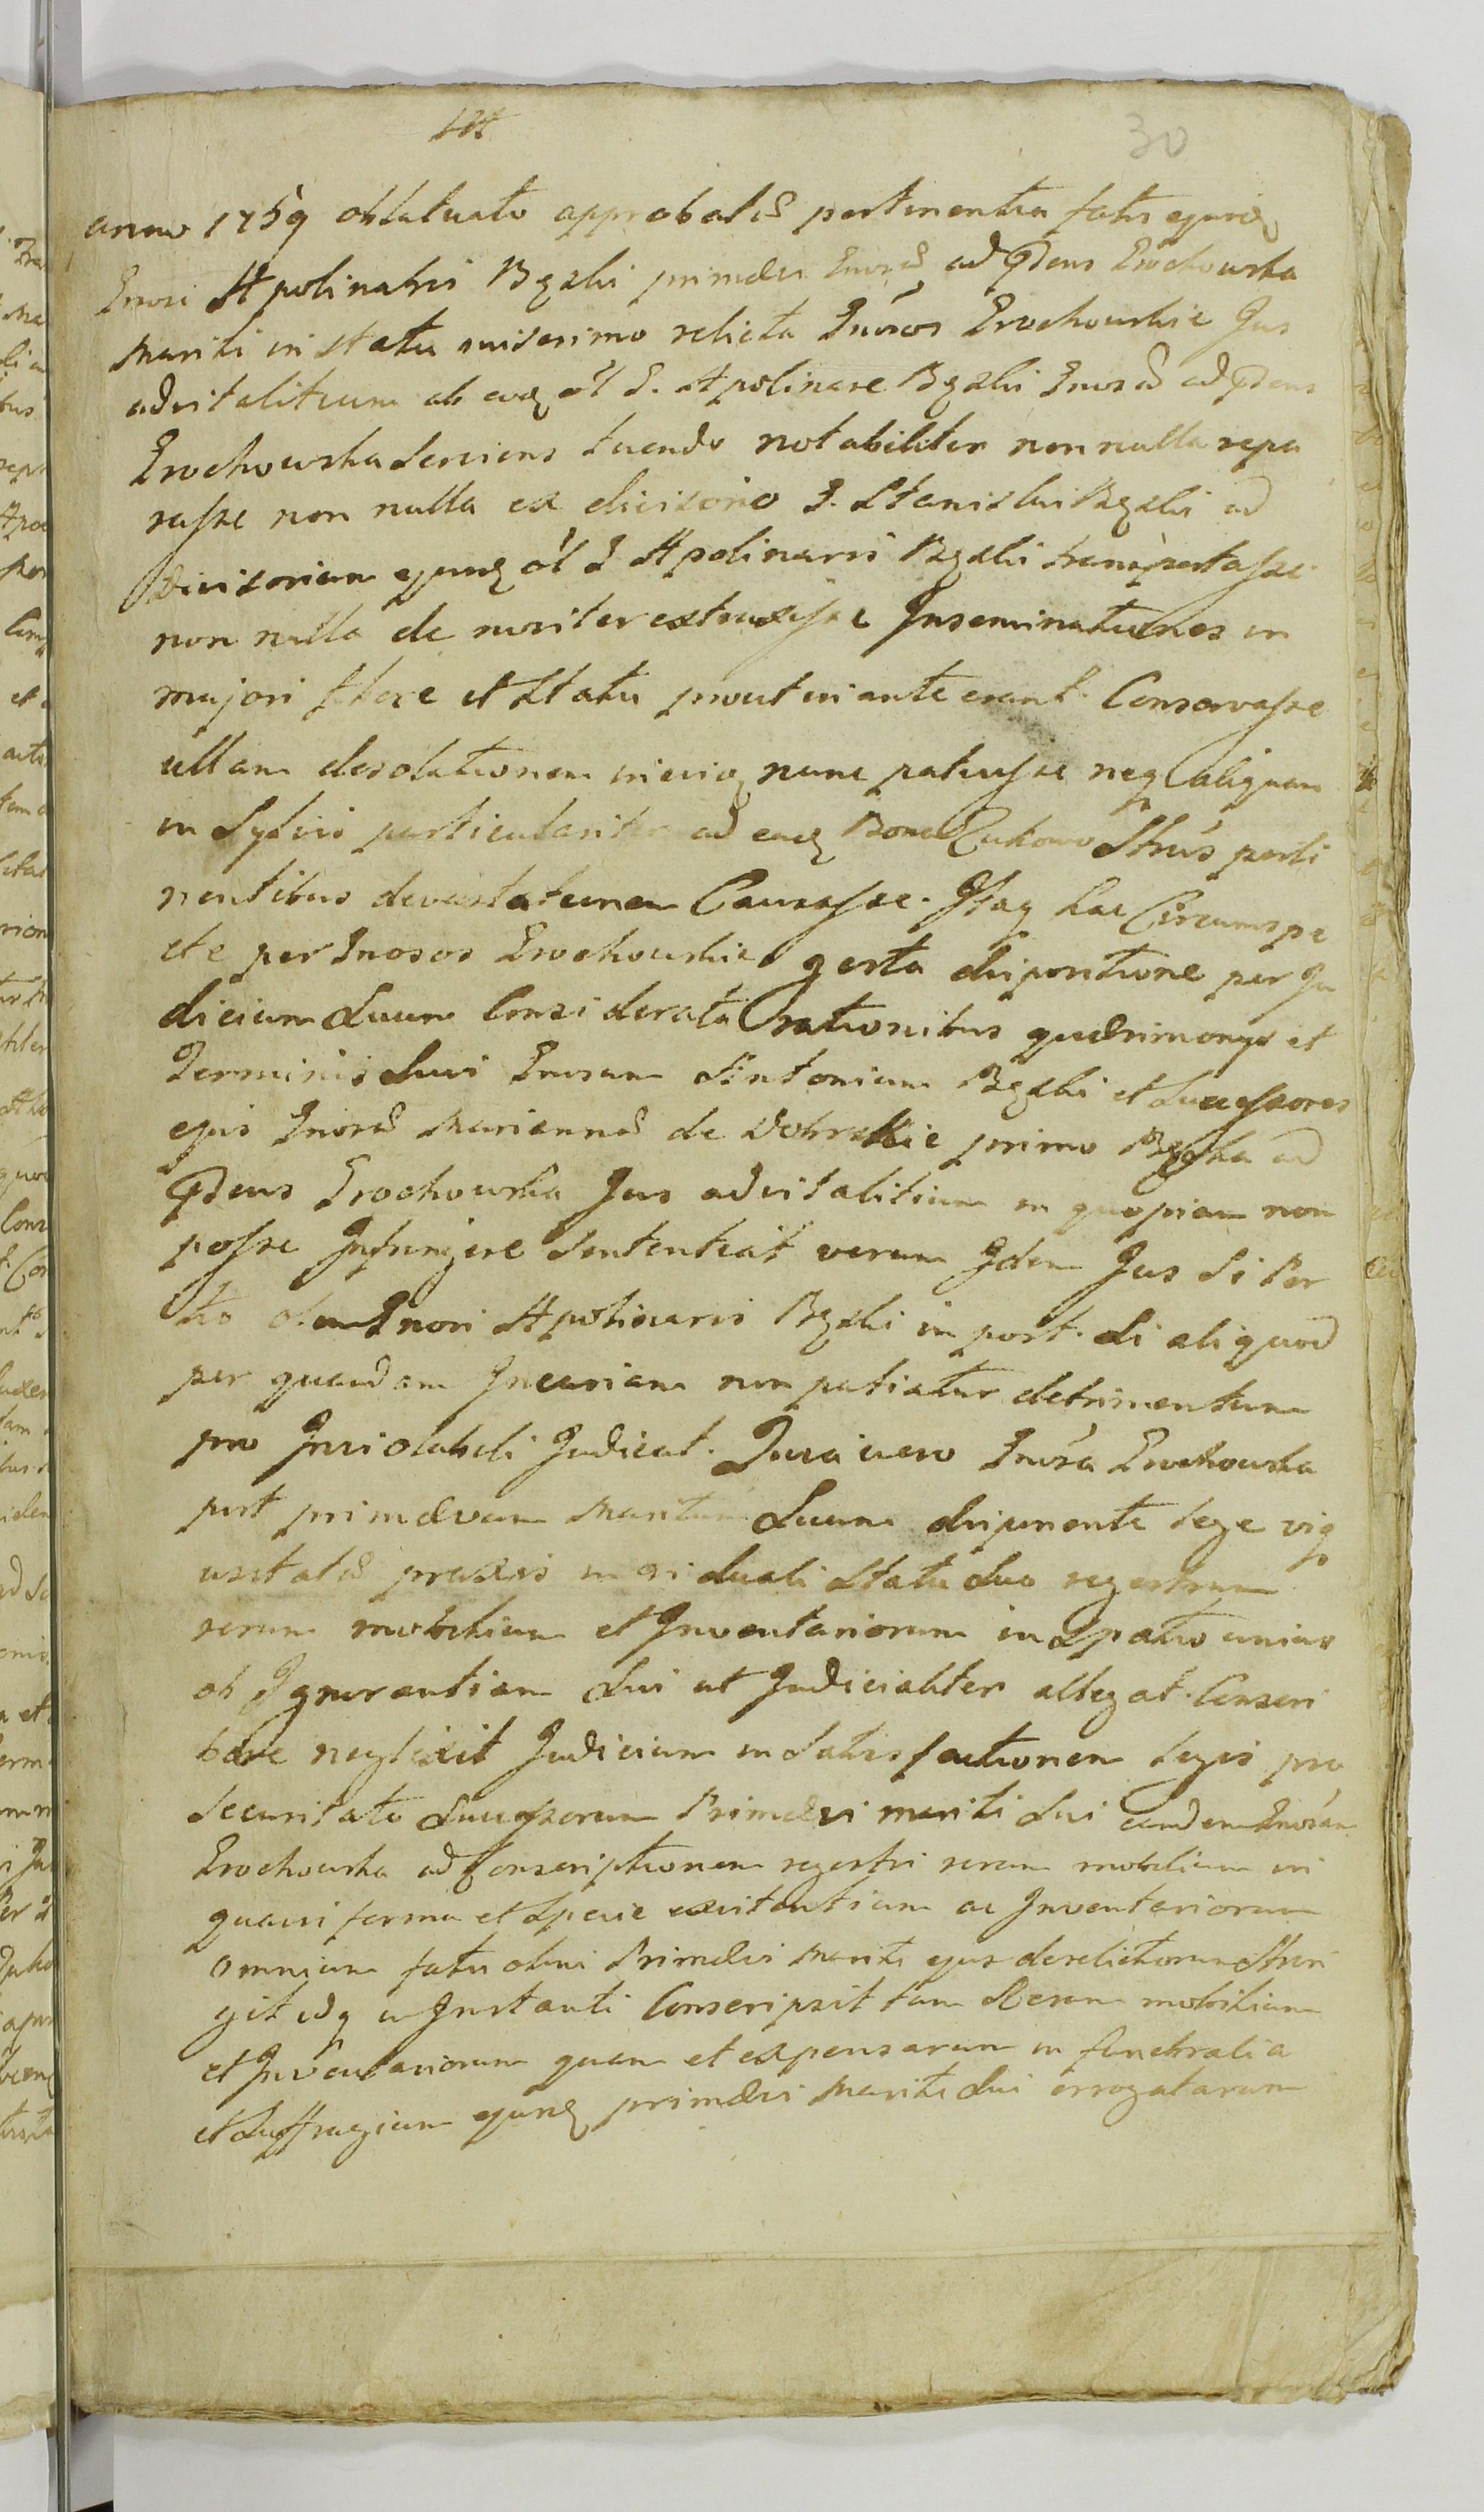 30
anno 1759 oblatuato approbatis pertinentia fatis ejusq
Gnosi Apolinaris Bęzki primævi Gnosæ ad Præns Grochowska
Mariti in statu miserimo relicta Gnosos Grochowskie Jus
advitalitium ab eoq ol G. Apolinare Bęzki Gnosæ ad Præns
Grochowska serviens tuendo notabiliter non nulla repa
rasse non nulla ex divisorio G. Stanislai Bęzki ad
Divisorium ejusq ol G Apolinaris Bęzki transportasse
non nulla de noviter extruxisse Inseminationes in
majori flore et Statu prout in ante erant Conservasse
ullam desolationem in eviq nunc patuisse neq aliquam
in Sylvis particulariter ad eaq Bona Żukowo Strús perti
nentibus devastationem Causasse. Itaq hac Circumspe
cte per Gnosos Grochowskie gesta dispositione per Ju
dicium Suum Considerata rationibus quærimonys et
Terminis Sui Gnosum Antonium Bęzki et Successores
ejus Gnosæ Mariannæ de Dobrskie primo Bęzka ad
Præns Grochowska Jus advitalitium in quopiam non
posse Infringere Sententiat verum Idem Jus Si Per
ito olim Gnosi Apolinaris Bęzki in post. Si aliquod
per quandam Incuriam non patiatur detrimentum
pro Inviolabili Judicat. Quia vero Gnosa Grochowska
post primævum Maritum Suum disponente lege viq
usitatæ praxis in viduali Statu Suo regestrum
rerum mobilium et Inventariorum in Spatio unius
ob Ignorantiam Sui ut Judicialiter allegat. Conscri
bere neglexit Judicium in Satisfactionem legis pro
Securitate Successorum Primævi mariti Sui eandem Gnosam
Grochowska ad Conscriptionem regestri rerum mobilium in
quavi forma et Specie existentium ac Inventariorum
omnium fatis olim Primævi Mariti ejus derelictorum Strin
git idq in Instanti Conscripsit tam Rerum mobilium
et Inventariorum quam et expensarum in funebralia
et Suffragium ejusq primævi Mariti Sui errogatarum